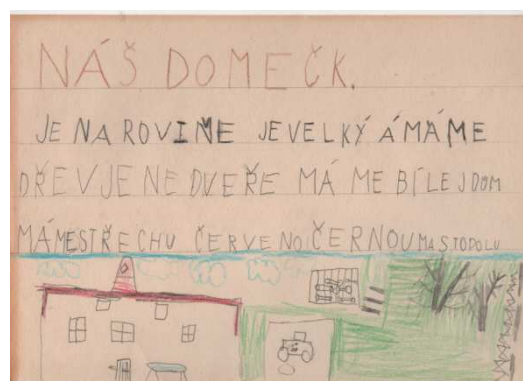 NÁŠ DOMEČK.
JE NA ROVIŇE JEVELKÝ Á MÁME
DŘEVJENE DVEŘE MÁ ME BÍLEJ DOM
MÁMESTŘECHU ČERVENO ČERNOU MA STODOLU